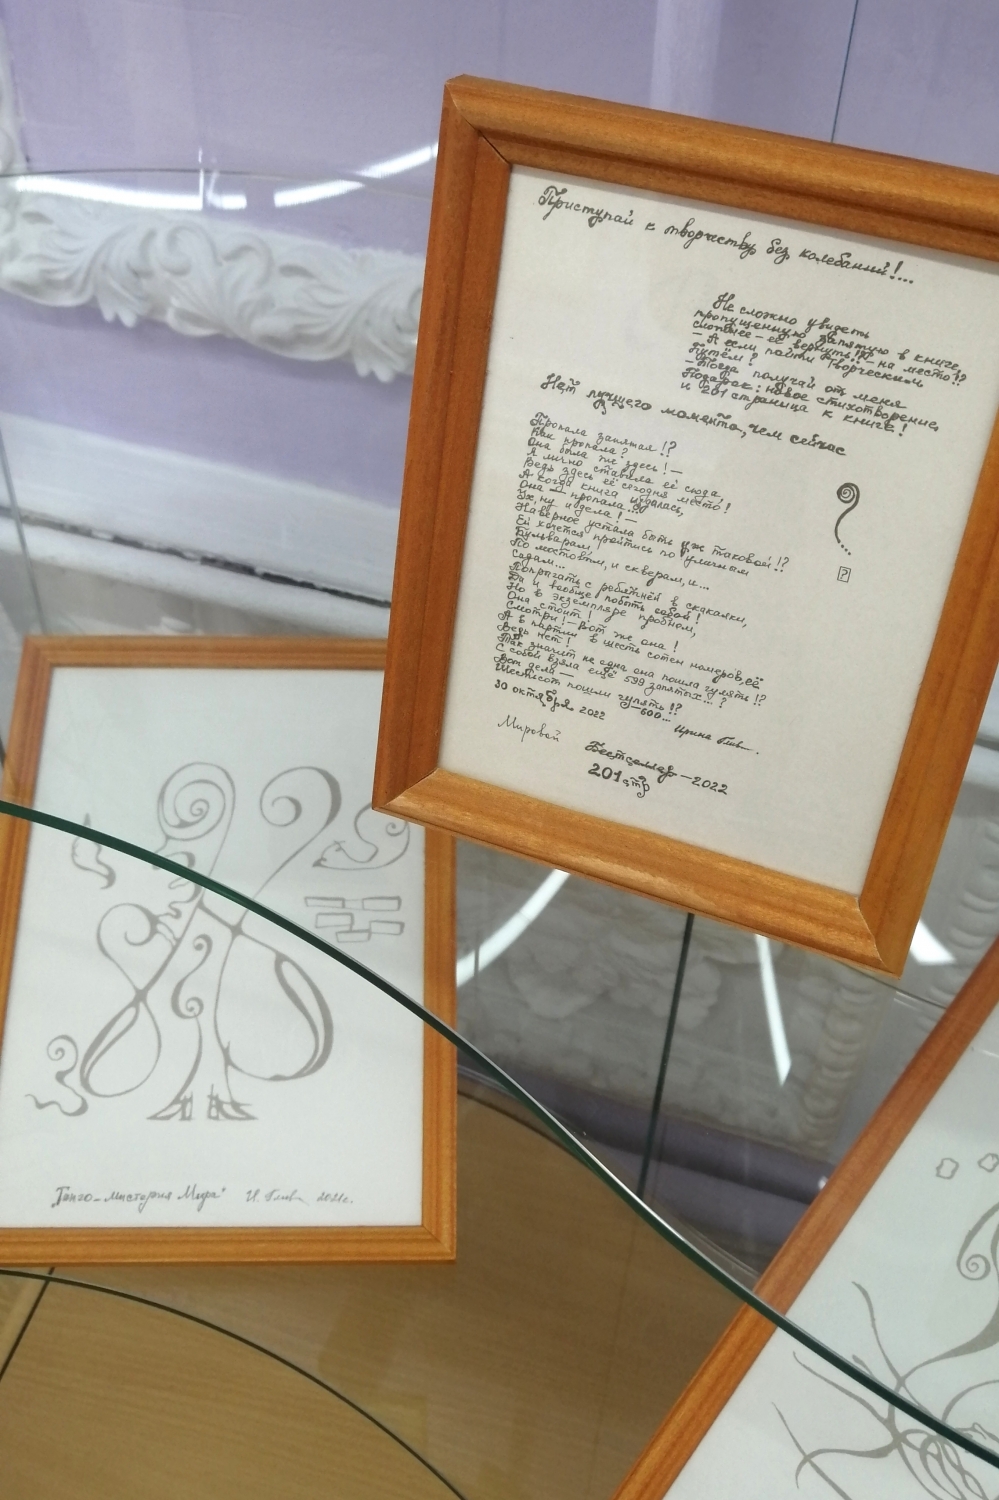 Приступай к творчеству без колебаний!...
Не сложно увидеть
пропущенную запятую в книге,
сложнее – её вернуть!? – на место!?
– А если пойти Творческим
Путём?
– Тогда получай от меня
Подарок: новое стихотворение,
и 201 страница к книге!
Нет лучшего момента, чем сейчас
Пропала запятая!?
Как пропала?
Она была же здесь! –
Я лично ставила её сюда
Ведь здесь её сегодня место!
А когда книга издалась,
Она – пропала...
Ух, ну и дела! –
Наверное устала быть уж таковой!?
Ей хочется пройтись по уличным
Бульварам,
По мостовым, и скверам, и...
Садам...
Попрыгать с ребятнёй в скакалки,
Да и вообще побыть собой!
Но в экземпляре пробном,
Она стоит!
Смотри! – Вот же она!
А в партии в шесть сотен номеров, её
Ведь нет!
Так значит не одна она пошла гулять!?
С собой взяла ещё 599 запятых...?
Вот дела –
Шестьсот пошли гулять!?
– 600...
30 октября 2022
Ирина
Мировой
Бестселлер – 2022
201 стр
"Танго – мистерия Мира" И. 2021г.